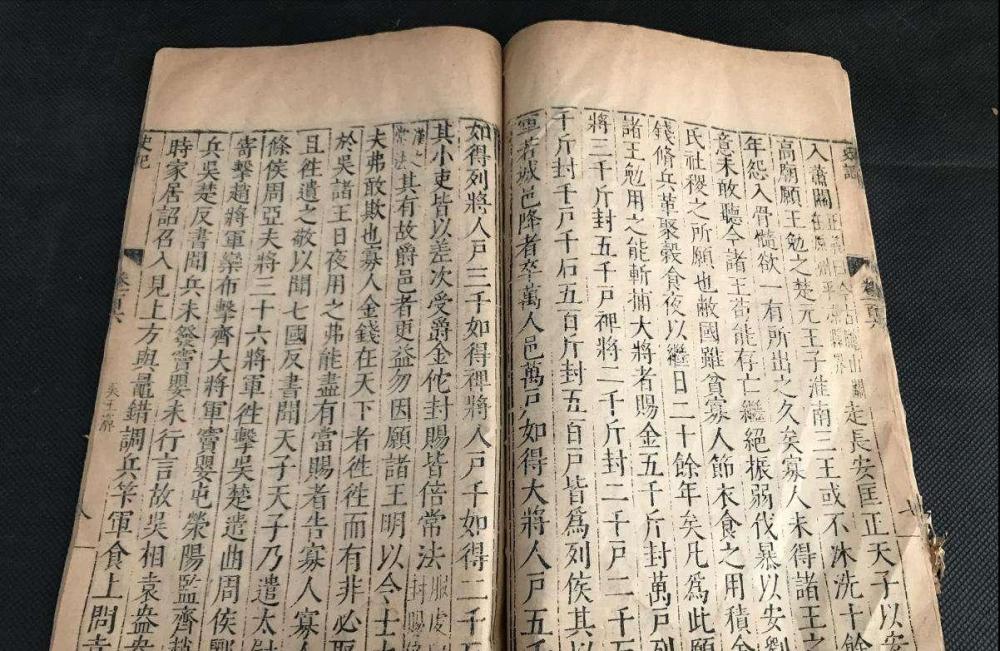 史記 卷百六 七
入蕭關正義曰今古隴山關在原州平涼縣界走長安匡正天子以安
高廟願王勉之楚元王子淮南三王或不沐洗十餘
年怨入骨髓欲一有所出之久矣寡人未得諸王之
意未敢聽今諸王苟能存亡繼絕振弱伐暴以安劉
民社稷之所願也敝國雖貧寡人節衣食之用積金
錢脩兵革聚穀食夜以繼日二十餘年矣凡爲此願
諸王勉用之能斬捕大將者賜金五千斤封萬戶列
將三千斤封五千戶裨將二千斤封二千戶二千石
千斤封千戶千石五百斤封五百戶皆爲列侯其以
軍若城邑降者卒萬人邑萬戶如得大將人戶五千
如得列將人戶三千如得裨將人戶千如得二千
其小吏皆以差次受爵金佗封賜皆倍常法服虔封賜
漢之常法其有故爵邑者更益勿因願諸王明以令士
夫弗敢欺也寡人金錢在天下者往往而有非必取
於吳諸王日夜用之弗能盡有當賜者告寡人寡人
且往遺之敬以聞七國反書聞天子天子乃遣太尉
條侯周亞夫將三十六將軍往擊吳楚遣曲周侯酈
寄擊趙將軍欒布擊齊大將軍竇嬰屯滎陽監齊趙
兵吳楚反書聞兵未發竇嬰未行言故吳相袁盎盎
時家居詔召入見上方與鼂錯調兵筭軍食上問
史記 卷百六 八